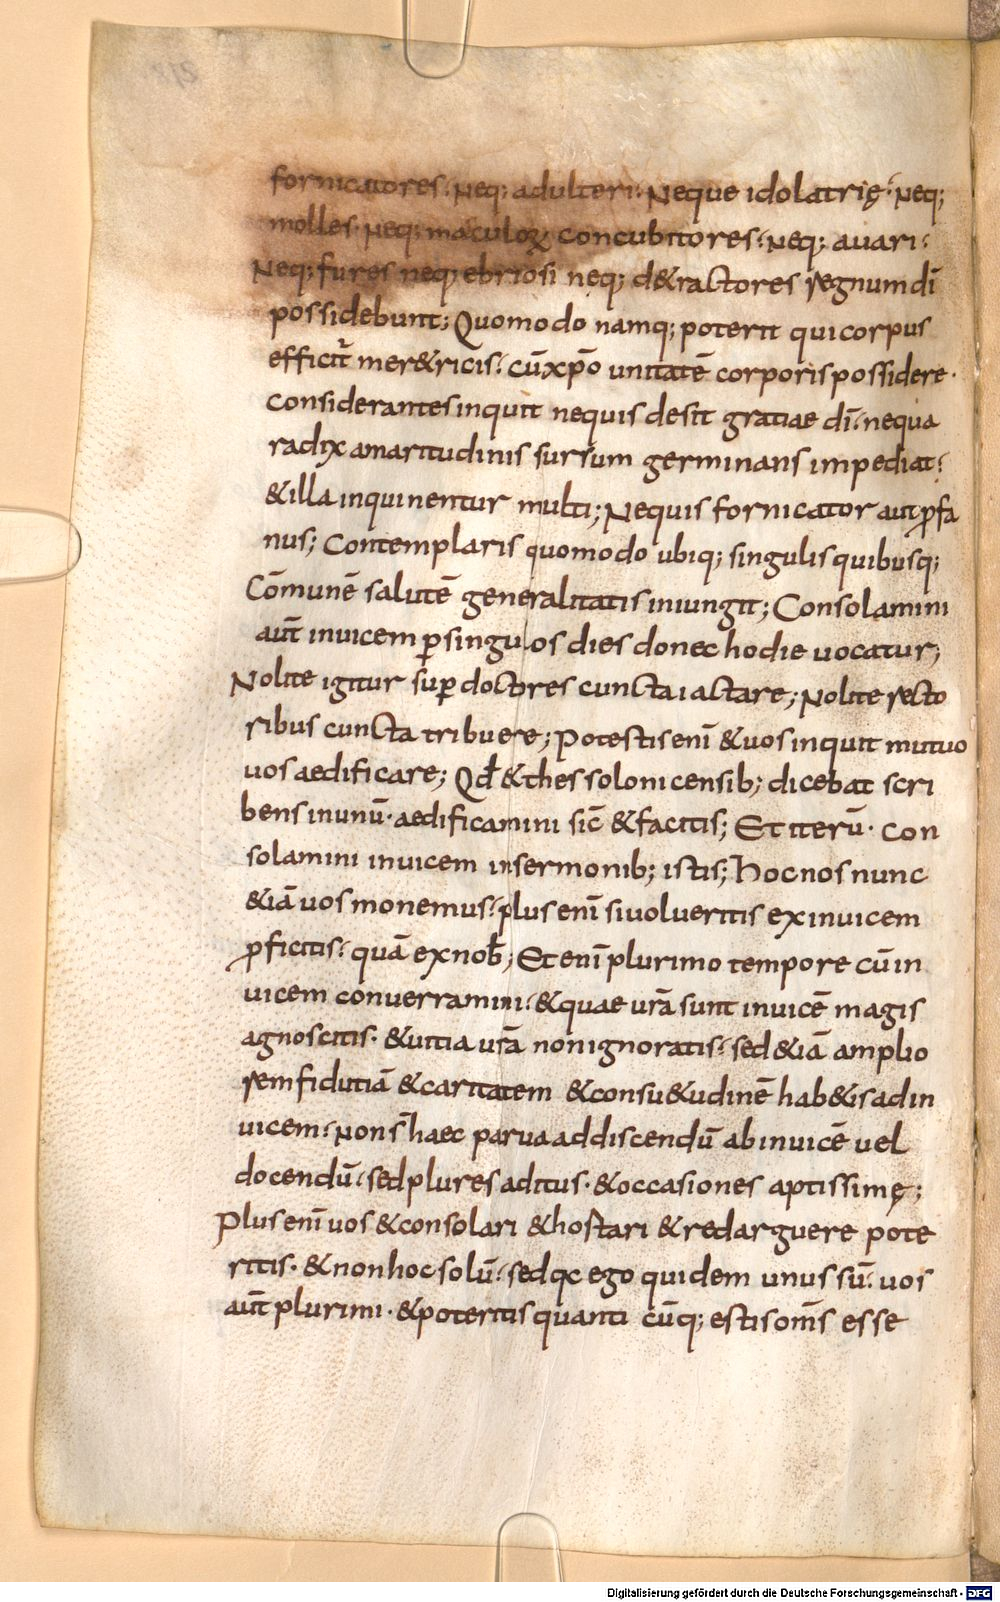 fornicatores. Neq; adulteri. Neque idolatrię. Neq;
molles. Neq; masculoꝝ concubitores. Neq; auari.
Neq; fures neq; ebriosi neq; d&ractores regnum dī
possidebunt; Quomodo namq; poterit qui corpus
efficit̄ mer&ricis. cū xp̄o unitatē corporis possidere.
considerantes inquit nequis desit gratiae dī. nequa
radix amaritudinis sursum germinans impediat.
&illa inquinentur multi; Nequis fornicator aut ꝓfa
nus; Contemplaris quomodo ubiq; singulis quibusq;
Cōmunē salutē generalitatis iniungit; Consolamini
aūt inuicem ꝑ singulos dies donec hodie uocatur;
Nolite igitur suꝑ doctores cuncta iactare; Nolite recto
ribus cuncta tribuere; Potestis enī &uos inquit mutuo
uos aedificare; Qđ &thessolonicensib; dicebat scri
bens in unū. aedificamini sic̄ &facitis; Et iterū. Con
solamini inuicem in sermonib; istis; Hoc nos nunc
&iā uos monemus. plus enī si uolueritis ex inuicem
ꝓficitis. quā ex nob̄; Et enī plurimo tempore cū in
uicem conuerramini. &quae ur̄a sunt inuicē magis
agnoscitis. &uitia ur̄a non ignoratis. sed &iā amplio
rem fidutiā &caritatem &consu&udinē hab&is ad in
uicem. Non s̄ haec parua ad discendū ab inuicē uel
docendū. sed plures aditus. &occasiones aptissimę;
Plus enī uos &consolari &hostari &redarguere pote
ritis. &non hoc solū. sed qc ego quidem unus sū. uos
aūt plurimi. &poteritis quanti cūq; estis om̄s esse
Digitalisierung gefördert durch die Deutsche Forschungsgemeinschaft - DFG